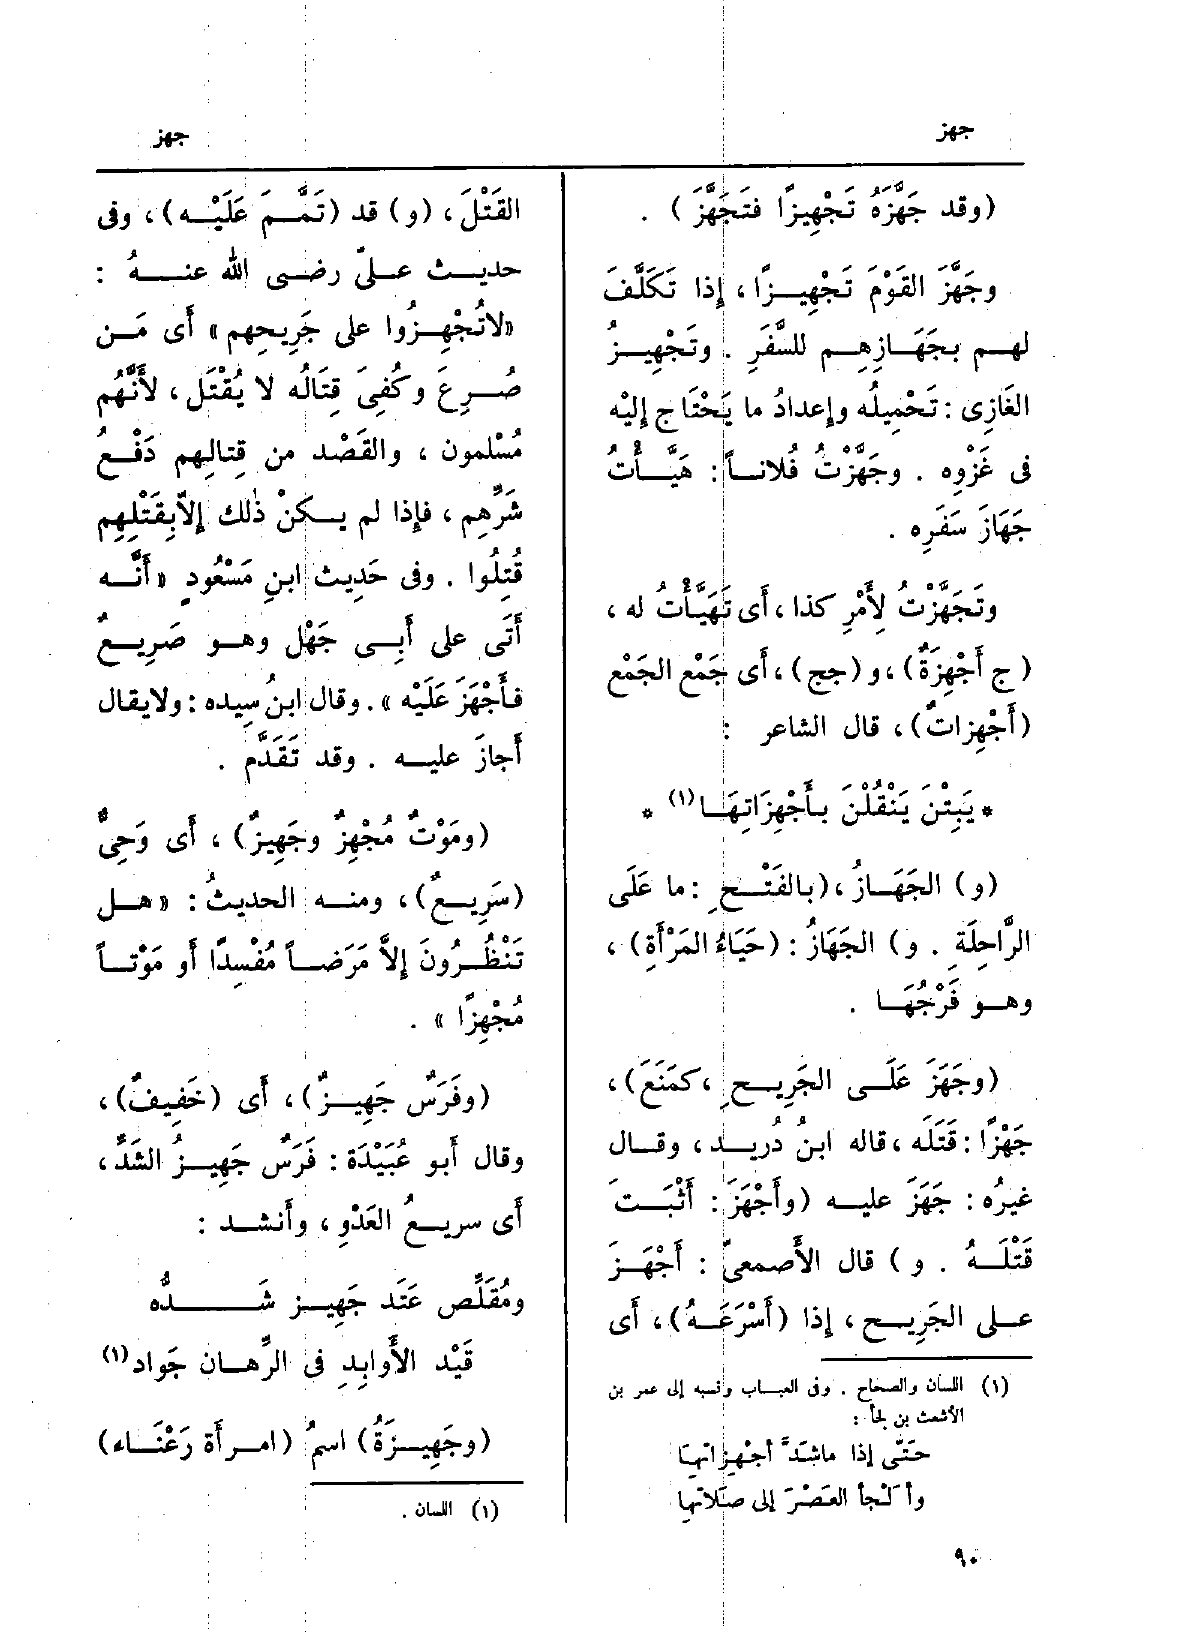 جهز
جهز
(وقد جَهَّزَهُ تَجْهِيزًا فتَجَهَّزَ) .
وجَهَّزَ القَوْمَ تَجْهِيـزًا، إِذا تَكَلَّفَ
لهـم بجَهَـازِهِـم للسَّفَرِ . وتَجْهِيـزُ
الغَازِى : تَحْمِيلُه وإعدادُ ما يَحْتاج إليْه
فى غَزْوِه . وجَهَّزْتُ فُلانـاً : هَيَّأْتُ
جَهَازَ سَفَرِه .
وتَجَهَّزْتُ لِأَمْرِ كذا ، أَى تَهَيَّأْتُ له ،
(ج أَجْهِزَةٌ)، و (جج)، أَى جَمْع الجَمْع
(أَجْهِزاتٌ)، قال الشاعر :
* يَبِتْنَ يَنْقُلْنَ بـأَجْهِزَاتِهَـا (١) *
(و) الجَهَـازُ ، (بالفَتْـحِ : ما عَلَى
الرَّاحِلَةِ . و) الجَهَازُ : (حَيَاءُ المَرْأَةِ) ،
وهـو فَرْجُهَـا .
(وجَهَزَ عَلَـى الجَرِيـحِ ، كمَنَعَ) ،
جَهْزًا : قَتَلَه ، قاله ابنُ دُريـد ، وقـال
غيرُه : جَهَزَ عليـه (وأَجْهَزَ : أَثْبَـتَ
قَتْلَـهُ . و) قال الأَصمعىّ : أَجْهَـزَ
علـى الجَرِيـح ، إذا (أَسْرَعَـهُ)، أَى
(١) اللسان والصحاح . وفى العبـاب ونسبه إلى عمر بن
الأشعث بن لجأ :
حَتّى إذا ماشَدّ أجْهِزاتِهـا
وأَلْجأ العَصْرَ إلى صَلاتِها
القَتْلَ ، (و) قد (تَمَّـمَ عَلَيْـه)، وفى
حديـث علـىّ رضـى الله عنـهُ :
«لاتُجْهِـزُوا على جَرِيحِهم» أَى مَـن
صُـرِعَ وكُفِىَ قِتَالُه لا يُقْتَل ، لأَنَّهُم
مُسْلمون ، والقَصْد من قِتالِهم دَفْـعُ
شَرِّهِم ، فإذا لم يـكنْ ذٰلك إلاّبِقَتْلِهِم
قُتِلُوا . وفى حَدِيث ابنِ مَسْعُودٍ «أَنَّـه
أَتَى على أَبِـى جَهْل وهـو صَرِيـعٌ
فـأَجْهَزَ عَلَيْه». وقال ابنُ سِيده : ولايقال
أَجازَ عليـه . وقد تَقَدَّم .
(ومَوْتٌ مُجْهِزٌ وجَهِيزٌ) ، أَى وَحِىٌّ
(سَرِيـعٌ)، ومنـه الحديثُ : «هـل
تَنْظُـرُونَ إلاَّ مَرَضـاً مُفْسِدًا أَو مَوْتـاً
مُجْهِزًا» .
(وفَرَسٌ جَهِيـزٌ)، أَى (خَفِيفٌ)،
وقال أَبو عُبَيْدَة : فَرَسٌ جَهِيـزُ الشَّدِّ ،
أَى سريـعُ العَدْوِ ، وأَنشـد :
ومُقَلِّص عَتَد جَهِيـز شَـدُّه
قَيْد الأَوابِدِ فى الرِّهـان جَواد (١)
(وجَهِيـزَةُ) اسمُ (امـرأَة رَعْنَـاء)
(١) اللسان .
٩٠